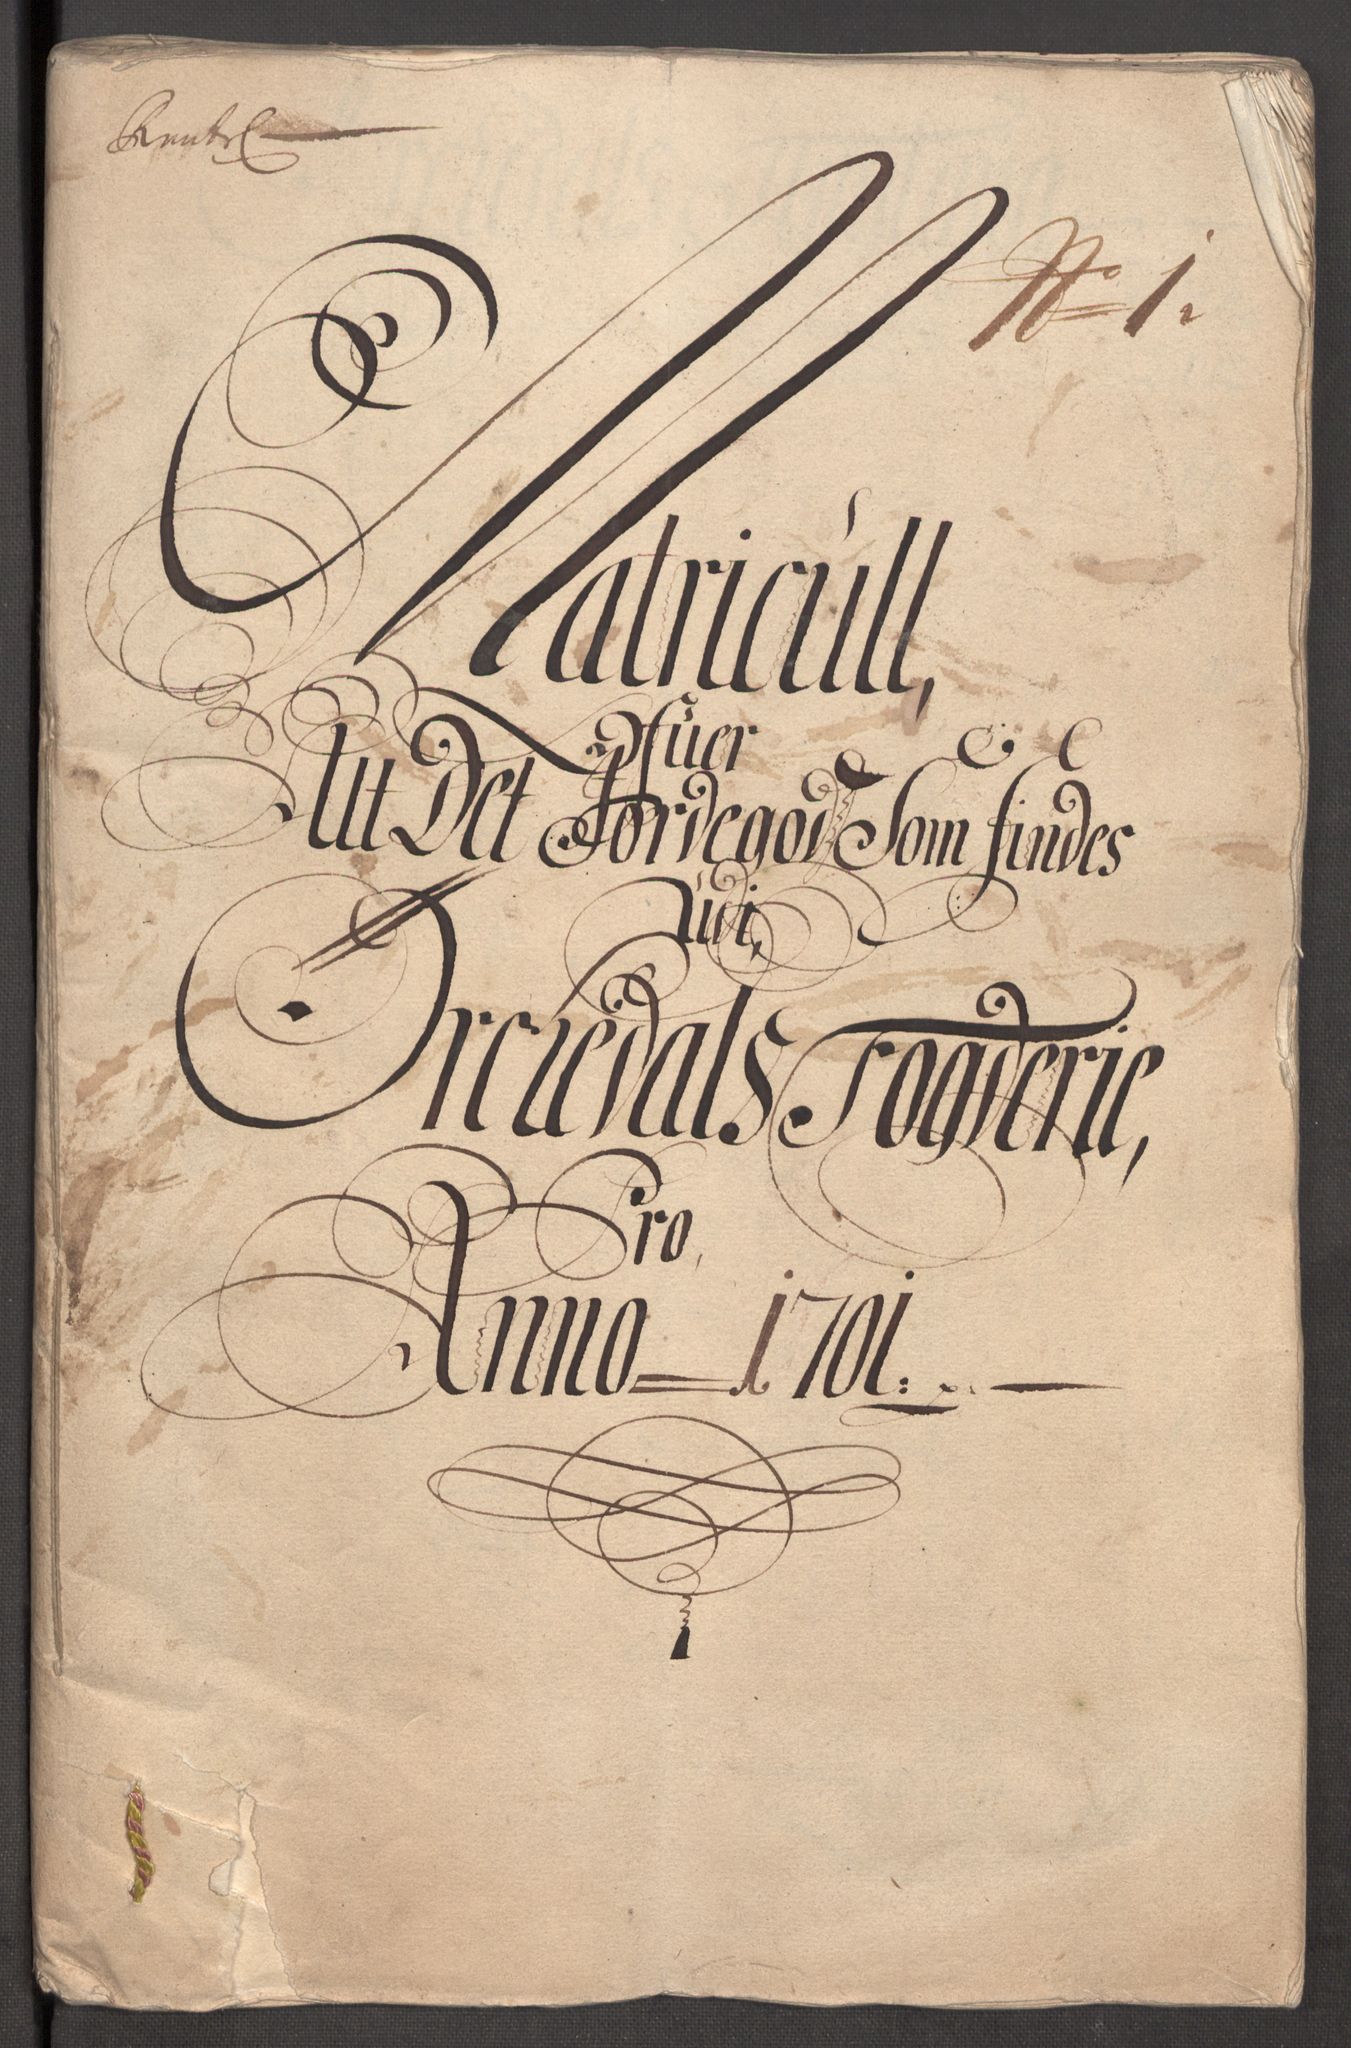 No 1.
Matricull,
Ofuer
Alt Det Jordegods Som findes
udi,
Orchedals Fogderie,
Pro,
Anno 1701.